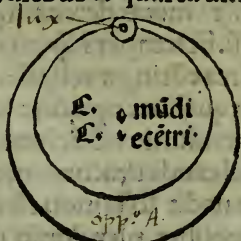 lux
C. mūdi
C. ecētri·
opp: A.